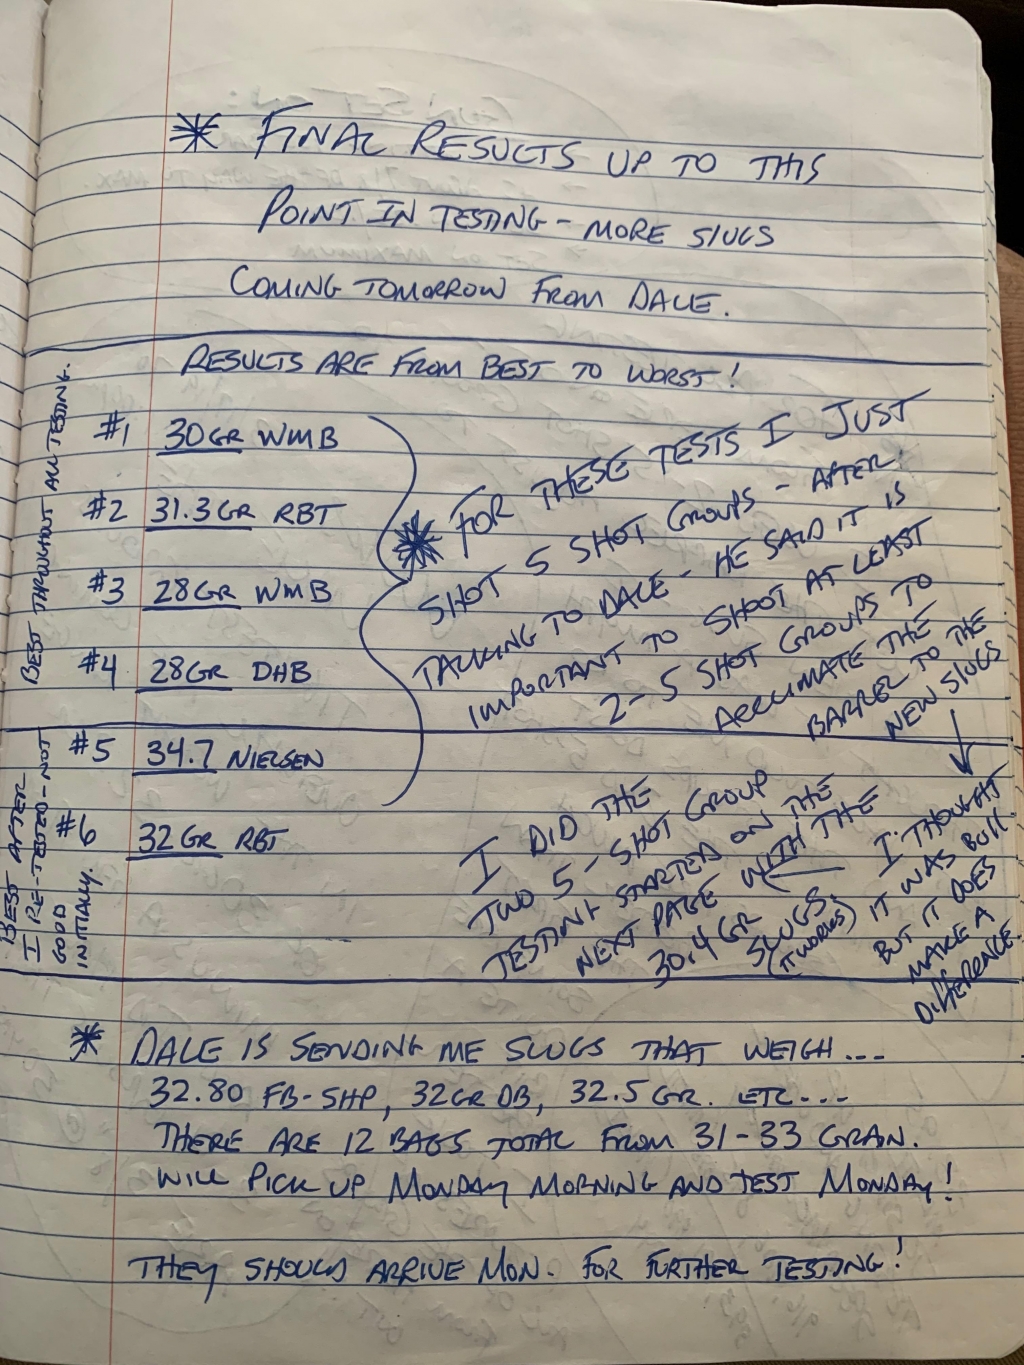 * FINAL RESULTS UP TO THIS
POINT IN TESTING - MORE SLUGS
COMING TOMORROW FROM DALE.
RESULTS ARE FROM BEST TO WORST!
BEST THROUGHOUT ALL TESTING.
#1 30GR WMB
#2 31.3GR RBT
#3 28GR WMB
#4 28GR DHB
BEST AFTER
I RE-TESTED - NOT
GOOD
INITIALLY.
#5 34.7 NIELSEN
#6 32GR RBT
* FOR THESE TESTS I JUST
SHOT 5 SHOT GROUPS - AFTER
TALKING TO DALE - HE SAID IT IS
IMPORTANT TO SHOOT AT LEAST
2-5 SHOT GROUPS TO
ACCLIMATE THE
BARREL TO THE
NEW SLUGS
I THOUGHT
IT WAS BULL
BUT IT DOES
MAKE A
DIFFERENCE.
I DID THE
TWO 5-SHOT GROUP
TESTING STARTED ON THE
NEXT PAGE WITH THE
30.4 GR
SLUGS.
(IT WORKS)
* DALE IS SENDING ME SLUGS THAT WEIGH...
32.80 FB-SHP, 32GR DB, 32.5 GR. ETC...
THERE ARE 12 BAGS TOTAL FROM 31-33 GRAIN.
WILL PICK UP MONDAY MORNING AND TEST MONDAY!
THEY SHOULD ARRIVE MON. FOR FURTHER TESTING!